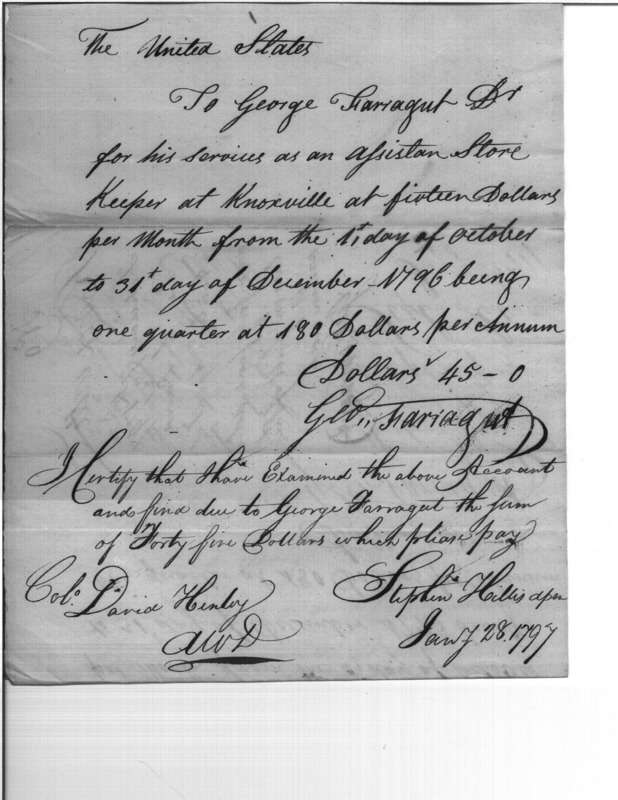 The United States
To George Farragut Dr
for his services as an assistan Store
Keeper at Knoxville at fivteen Dollars
per Month from the 1st day of October
to 31t day of December 1796 being
one quarter at 180 Dollars per Annum
Dollars 45-0
Geo,, Farragut
I Certify that I have Examined the above Account
and find due to George Farragut the sum
of Forty five Dollars which please pay
Colo. David Henley
AWD
Stephn Hillis
Jany 28. 1797